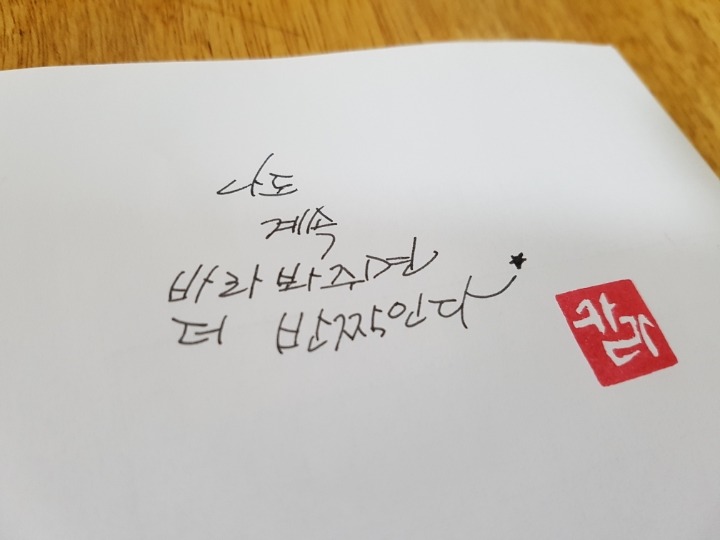 나도
계속
바라봐주면
더 반짝인다